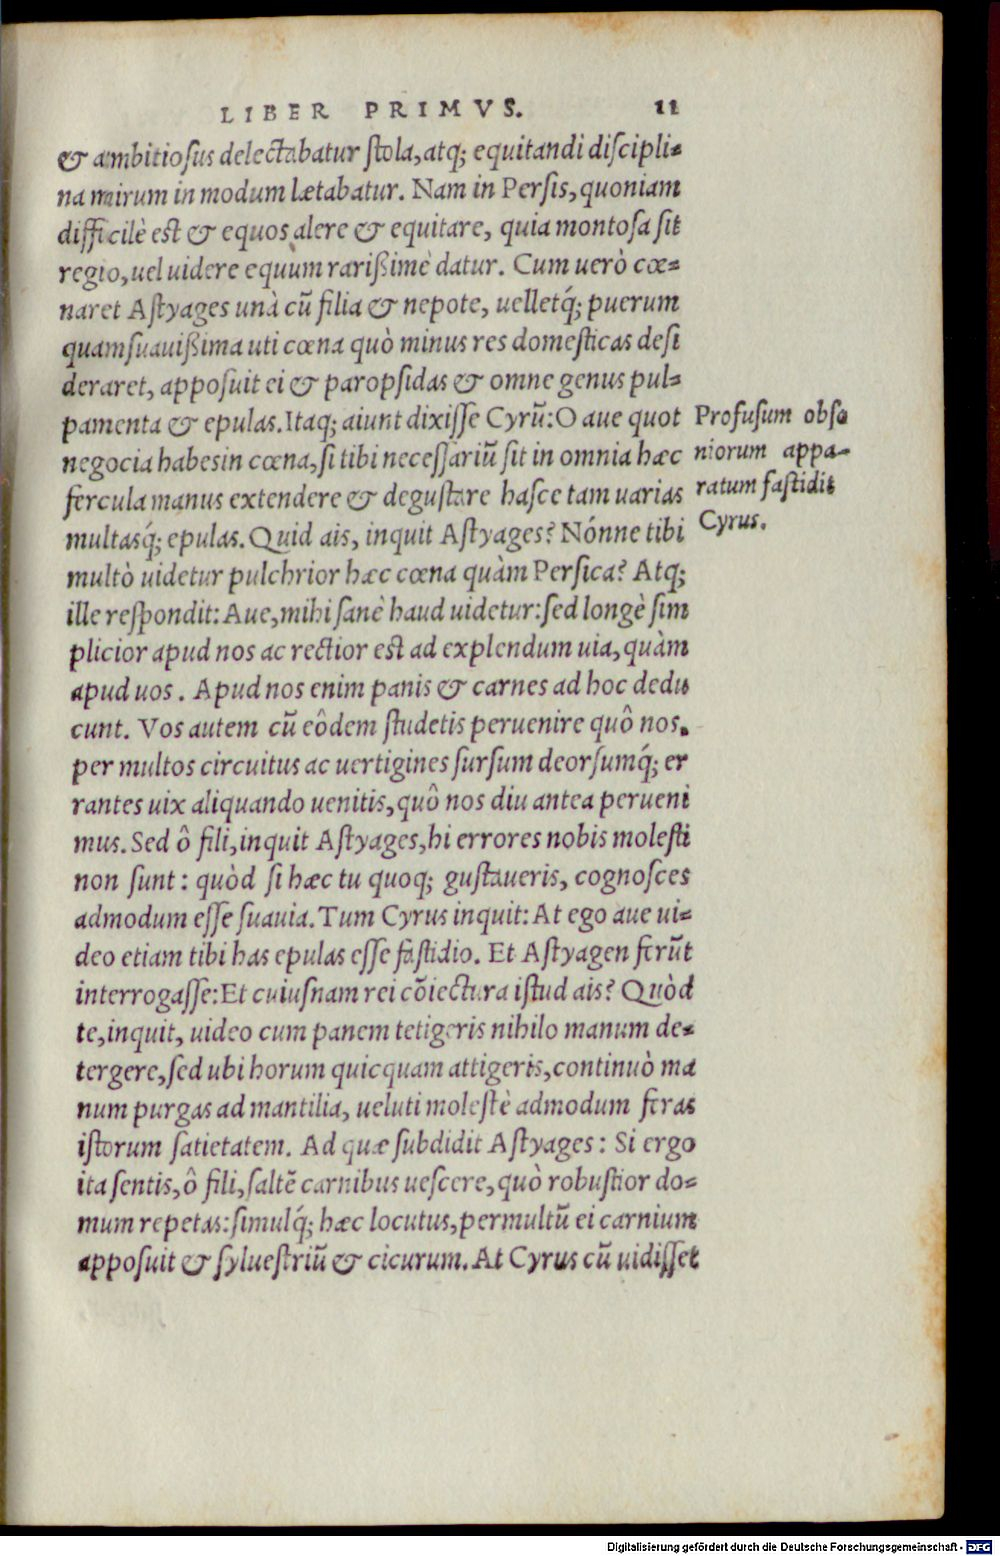 LIBER PRIMVS. 11
& ambitiosus delectabatur stola, atq; equitandi discipli-
na mirum in modum lætabatur. Nam in Persis, quoniam
difficilè est & equos alere & equitare, quia montosa sit
regio, uel uidere equum rarißimè datur. Cum uerò cœ-
naret Astyages unà cũ filia & nepote, uelletq́; puerum
quamsuauißima uti cœna quò minus res domesticas desi
deraret, apposuit ei & paropsidas & omne genus pul-
pamenta & epulas. Itaq; aiunt dixisse Cyrũ: O aue quot
negocia habes in cœna, si tibi necessariũ sit in omnia hæc
fercula manus extendere & degustare hasce tam uarias
multasq́; epulas. Quid ais, inquit Astyages? Nónne tibi
multò uidetur pulchrior hæc cœna quàm Persica? Atq;
ille respondit: Aue, mihi sanè haud uidetur: sed longè sim
plicior apud nos ac rectior est ad explendum uia, quàm
apud uos. Apud nos enim panis & carnes ad hoc dedu
cunt. Vos autem cũ eôdem studetis peruenire quô nos.
per multos circuitus ac uertigines sursum deorsumq́; er
rantes uix aliquando uenitis, quô nos diu antea perueni
mus. Sed ô fili, inquit Astyages, hi errores nobis molesti
non sunt: quòd si hæc tu quoq; gustaueris, cognosces
admodum esse suauia. Tum Cyrus inquit: At ego aue ui-
deo etiam tibi has epulas esse fastidio. Et Astyagen ferũt
interrogasse: Et cuiusnam rei cõiectura istud ais? Quòd
te, inquit, uideo cum panem tetigeris nihilo manum de-
tergere, sed ubi horum quicquam attigeris, continuò ma
num purgas ad mantilia, ueluti molestè admodum feras
istorum satietatem. Ad quæ subdidit Astyages: Si ergo
ita sentis, ô fili, saltẽ carnibus uescere, quò robustior do-
mum repetas: simulq́; hæc locutus, permultũ ei carnium
apposuit & syluestriũ & cicurum. At Cyrus cũ uidisset
Profusum obso
niorum appa-
ratum fastidit
Cyrus.
Digitalisierung gefördert durch die Deutsche Forschungsgemeinschaft - DFG